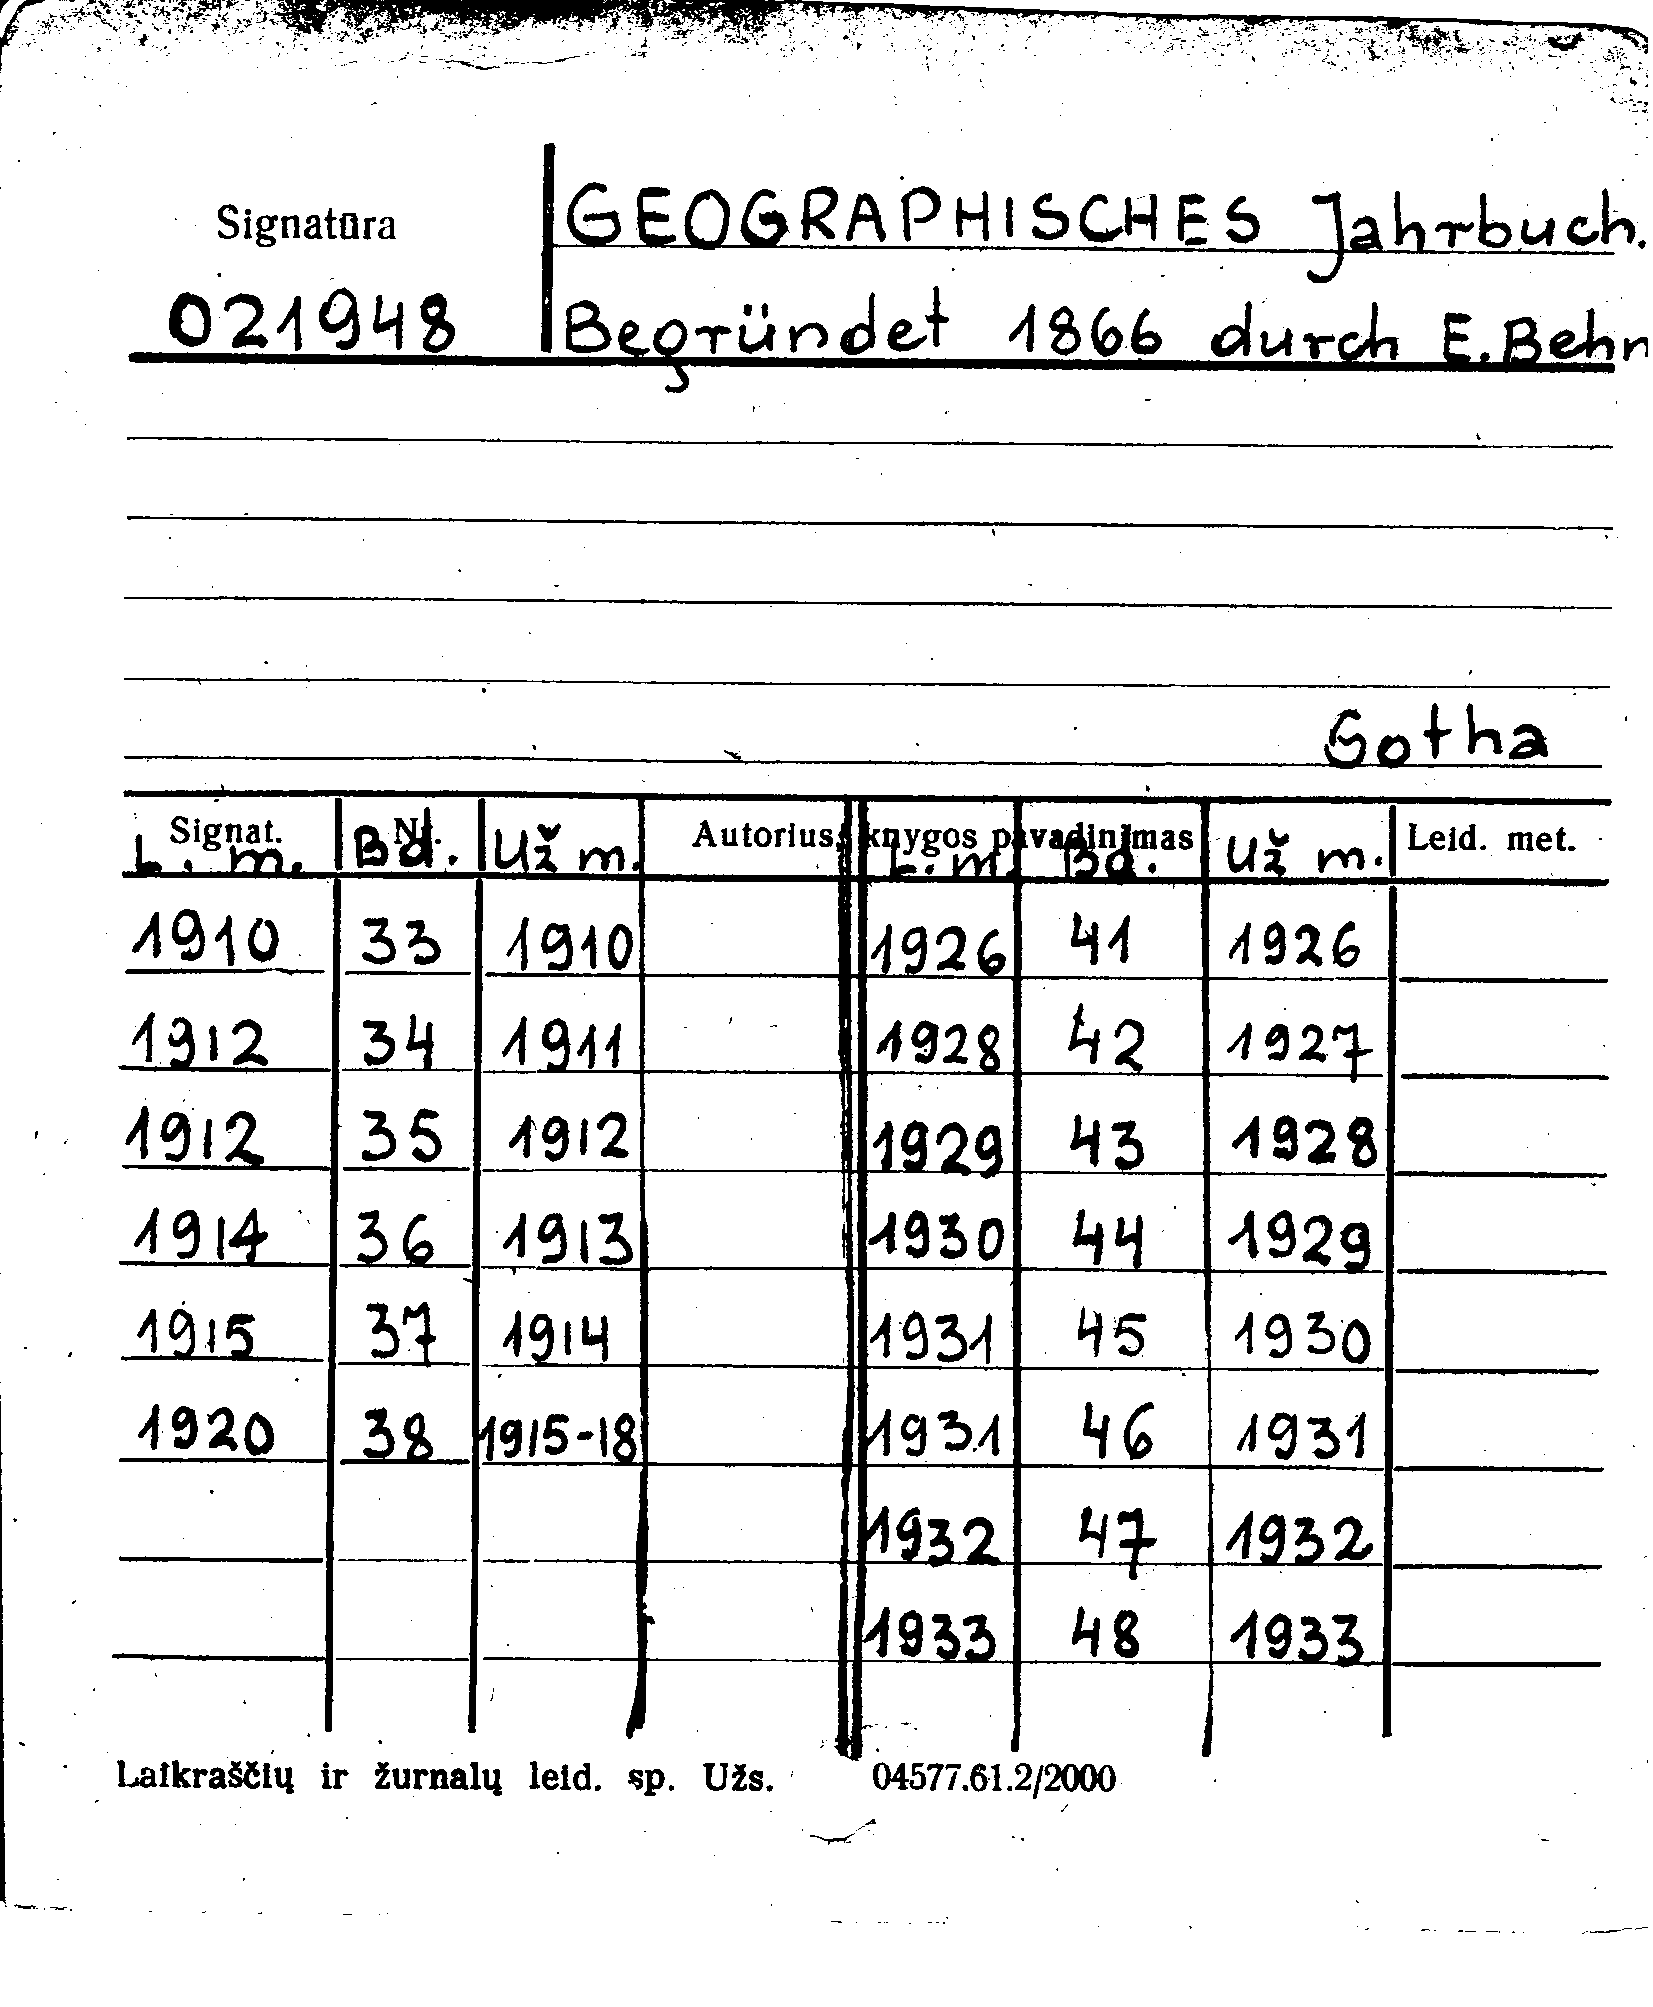 Signatūra
GEOGRAPHISCHES Jahrbuch.
021948
Begründet 1866 durch E. Behn
Gotha
Signat. Nr. Autorius, knygos pavadinimas Leid. met.
L. m. Bd. Už m. L. m. Bd. Už m.
1910 33 1910 1926 41 1926
1912 34 1911 1928 42 1927
1912 35 1912 1929 43 1928
1914 36 1913 1930 44 1929
1915 37 1914 1931 45 1930
1920 38 1915-18 1931 46 1931
1932 47 1932
1933 48 1933
Laikraščių ir žurnalų leid. sp. Užs. 04577.61.2/2000